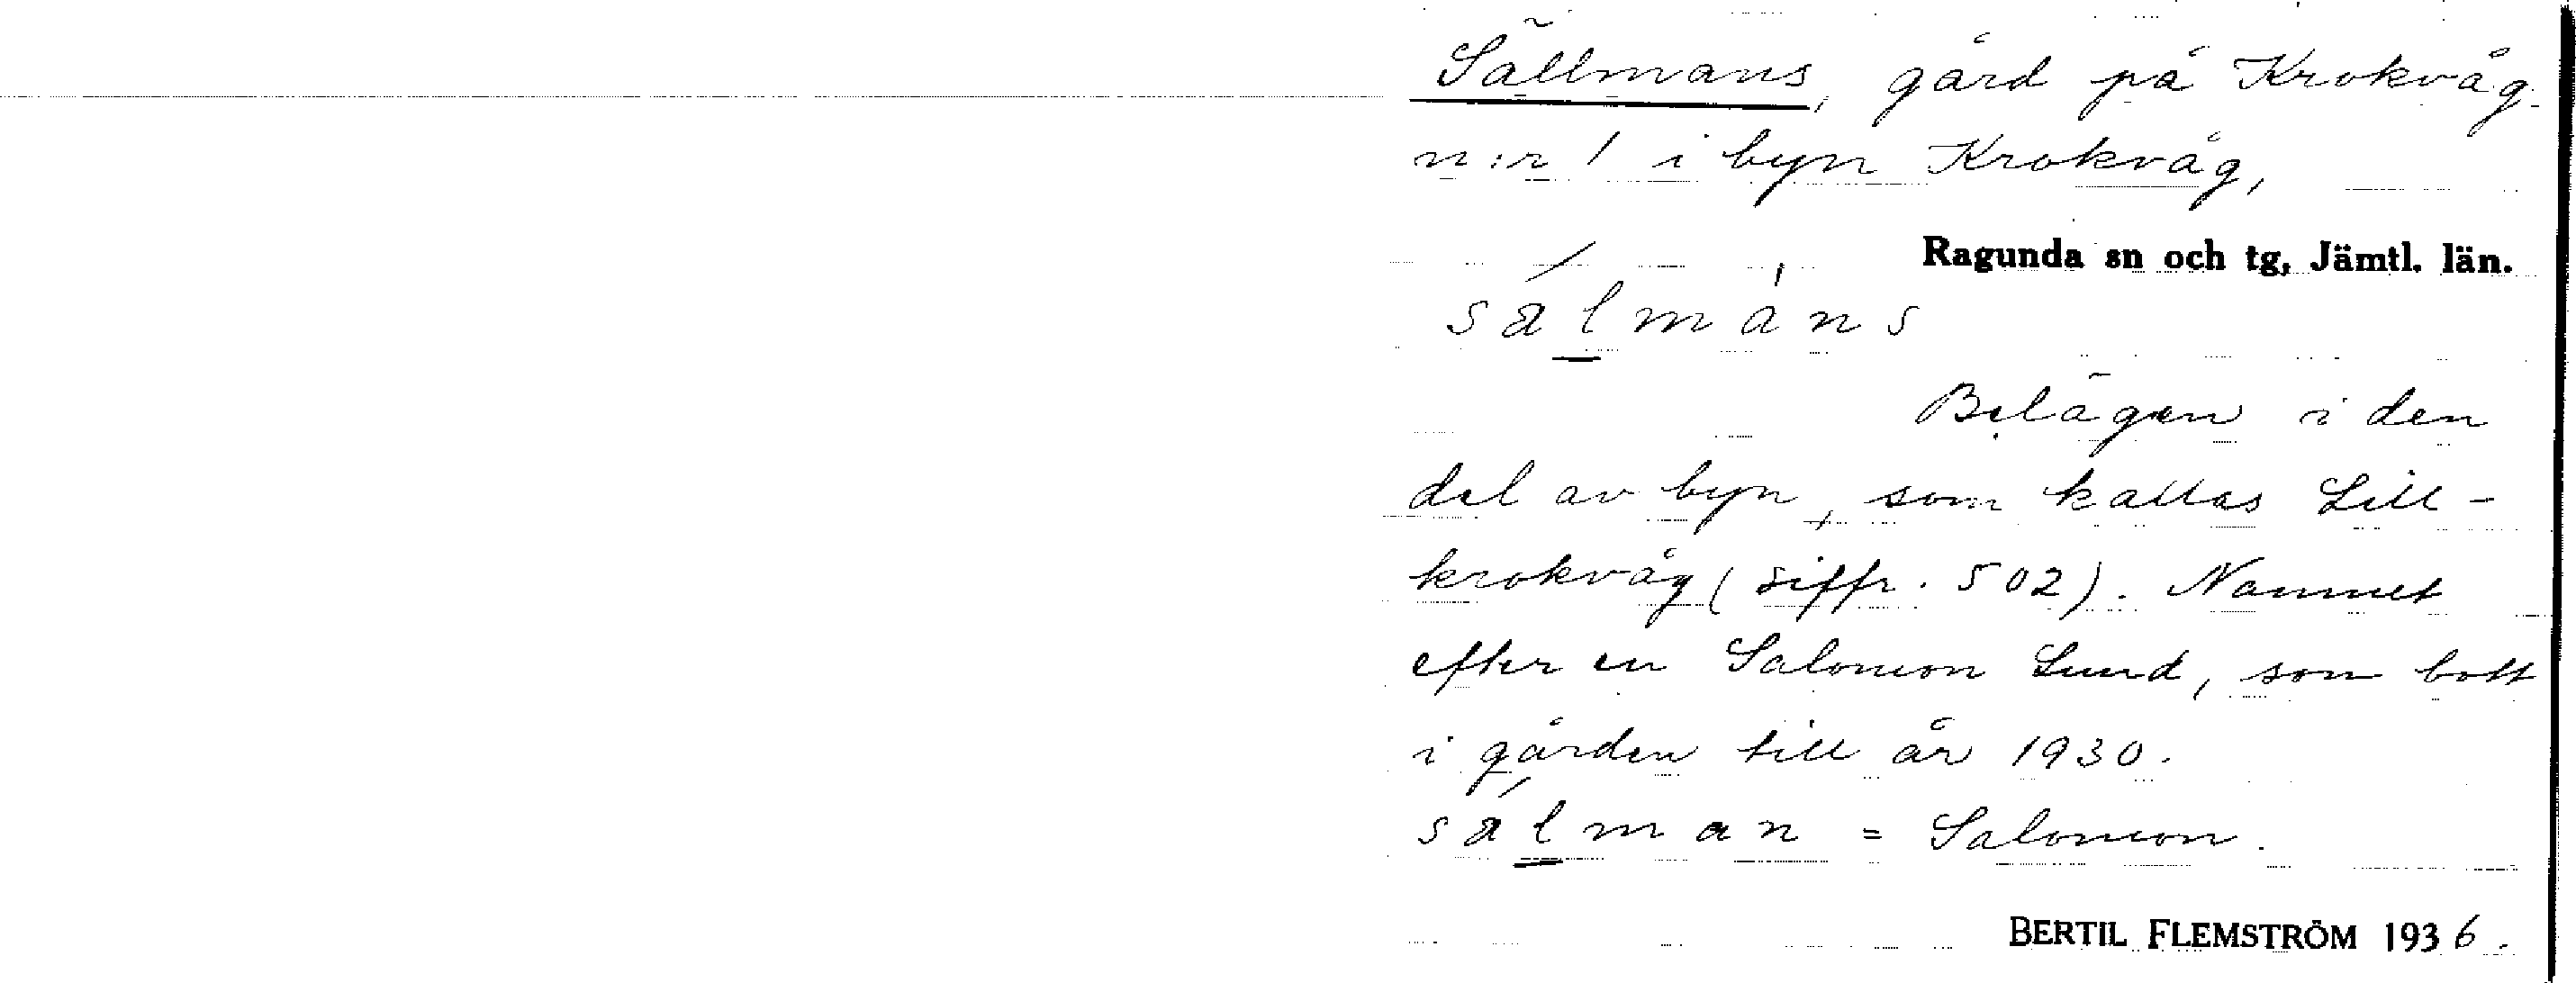 Sällmans, gård på Krokvåg
n:r 1 i byn Krokvåg,
Ragunda sn och tg, Jämtl. län.
sálmàns
Belägen i den
del av byn, som kallas Lill-
krokvåg (siffr. 502). Namnet
efter en Salomon Lund, som bott
i gården till år 1930.
sálman = Salomon.
BERTIL FLEMSTRÖM 1936.